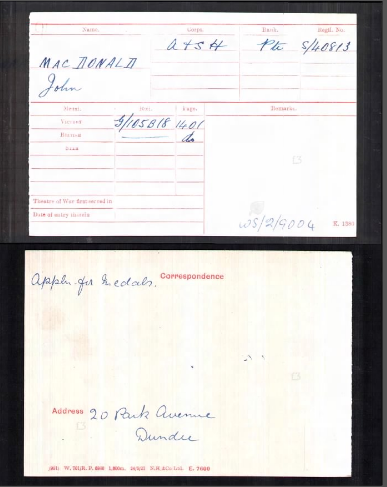 Name. Corps. Rank. Regtl. No.
MACDONALD A & S H Pte S/40813
John
Medal. Roll. Page. Remarks.
Victory G/105B18 1401
British do
Star
Theatre of War first served in
Date of entry therein
WS/2/9004 K. 1380
Appln. for Medals. Correspondence
Address 20 Park Avenue
Dundee